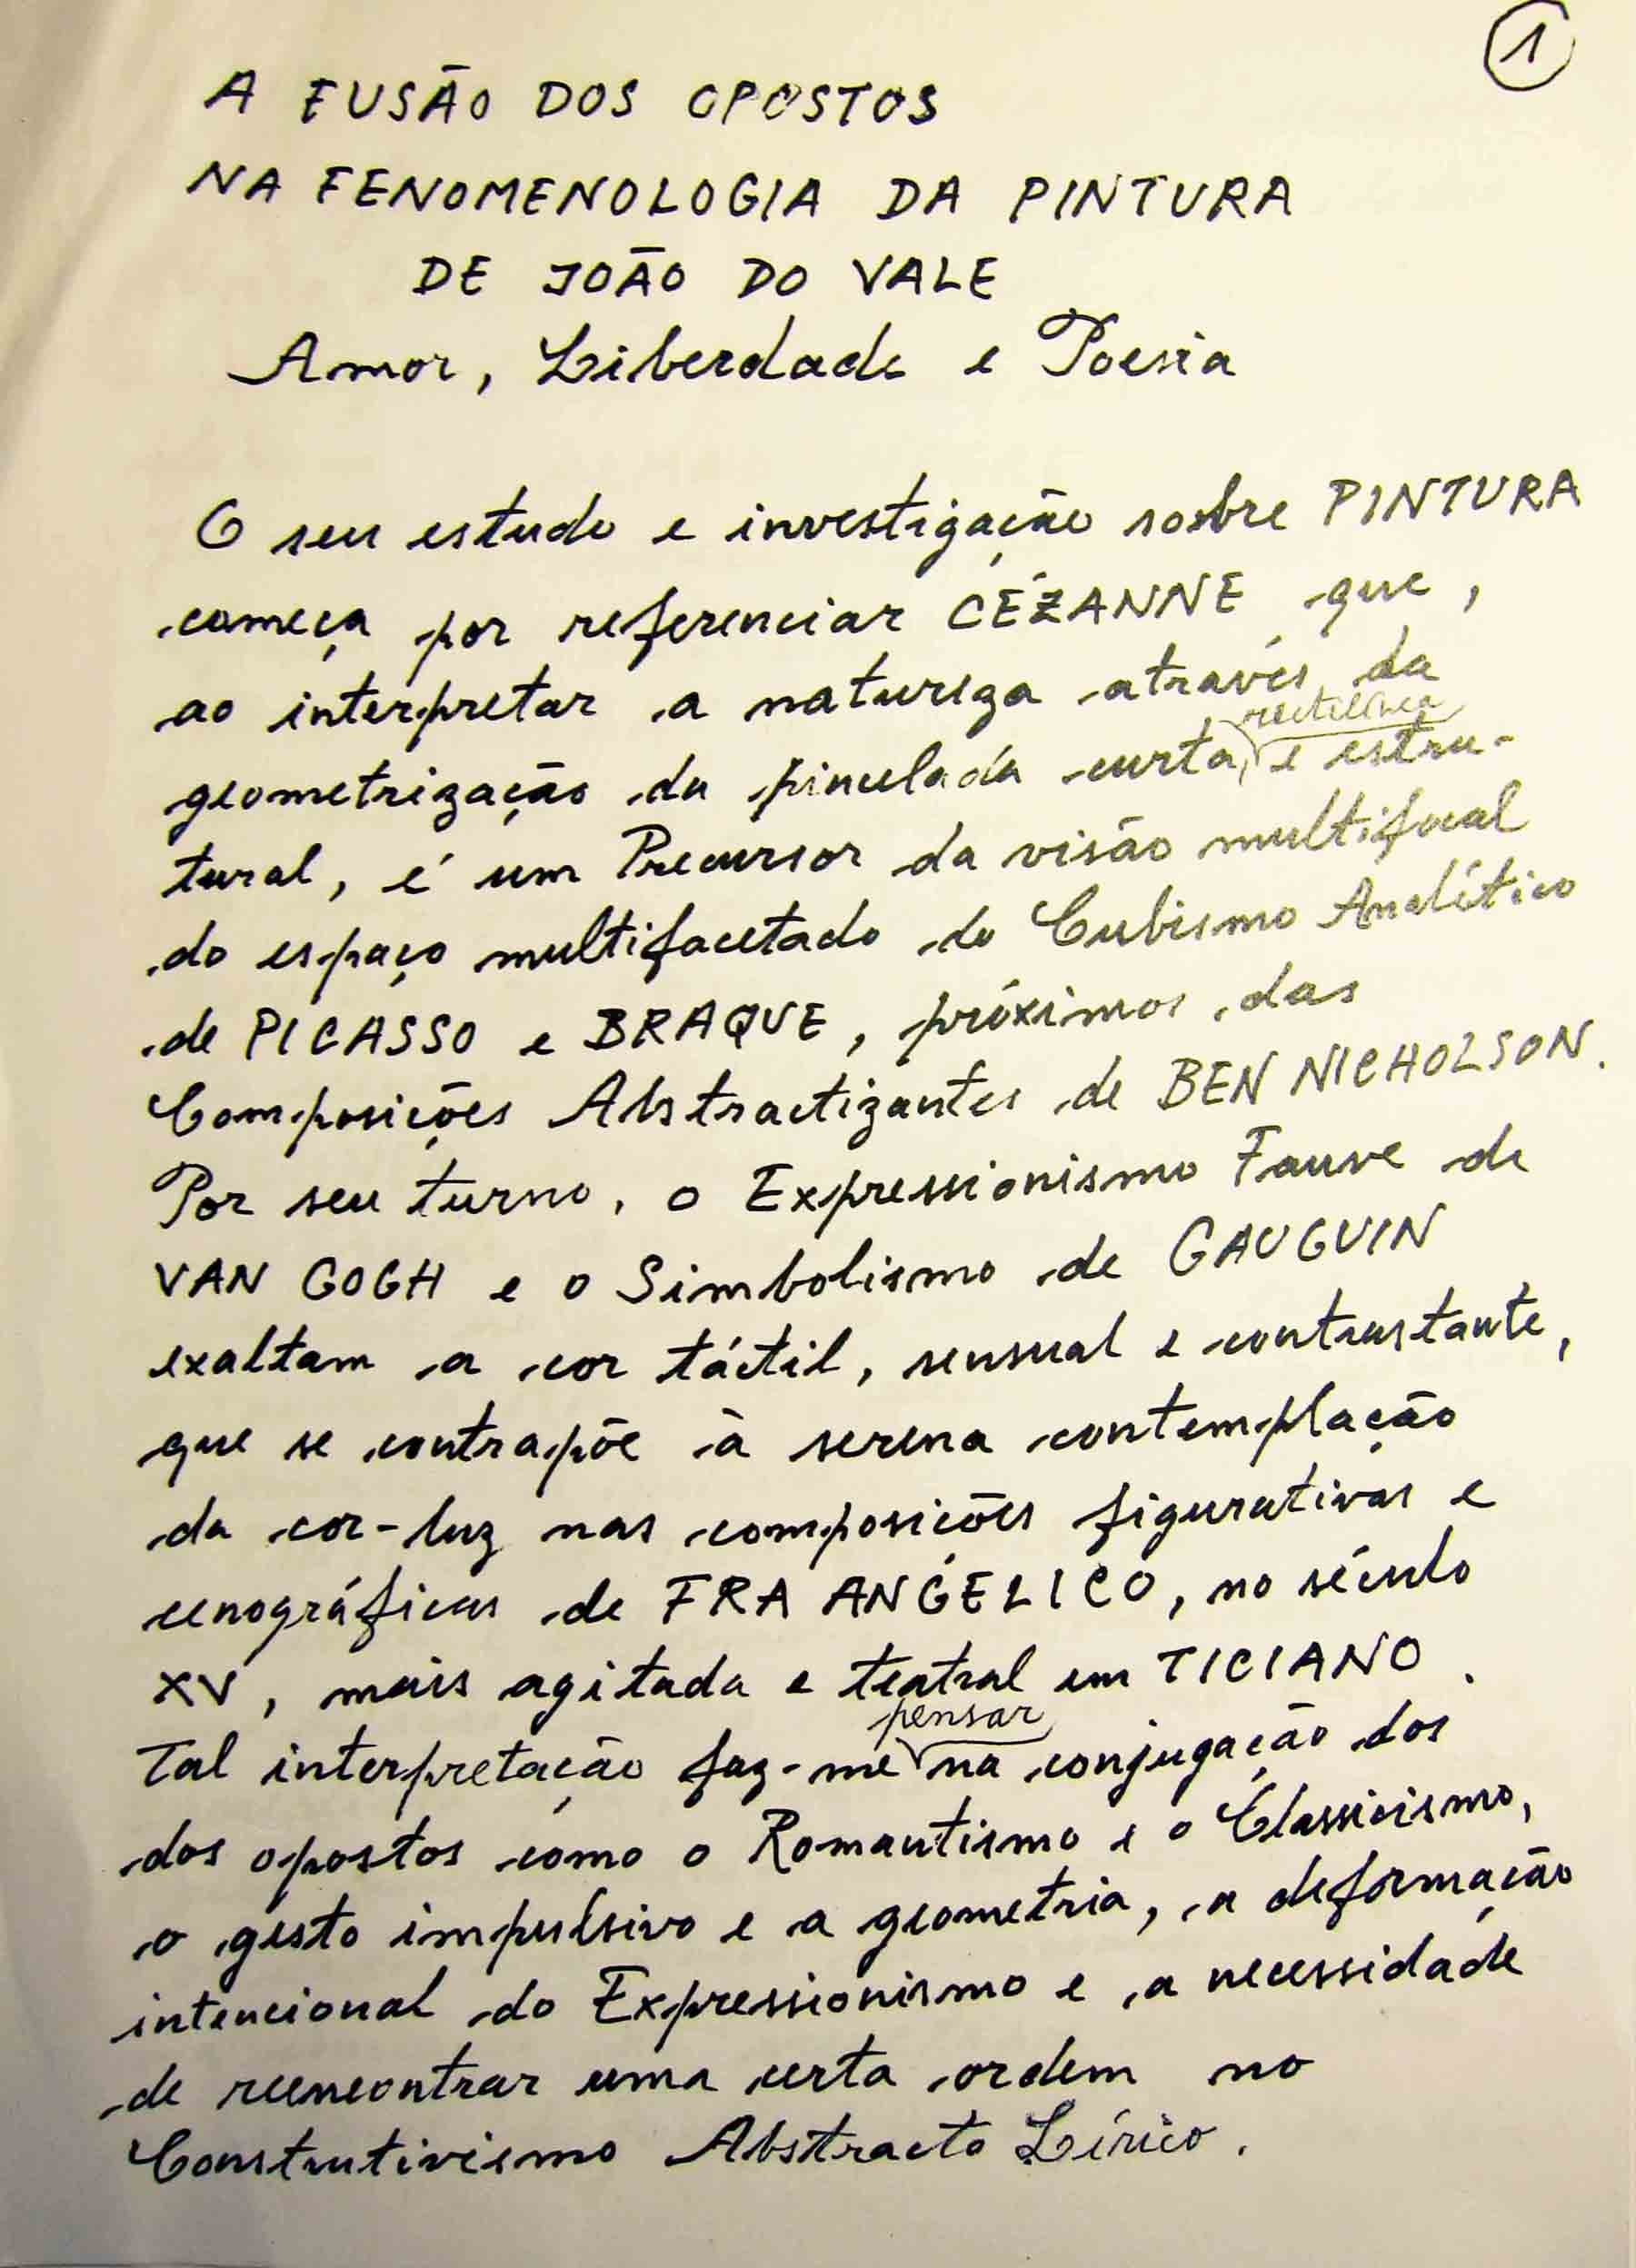 1
A FUSÃO DOS OPOSTOS
NA FENOMENOLOGIA DA PINTURA
DE JOÃO DO VALE
Amor, Liberdade e Poesia
O seu estudo e investigação sobre PINTURA
começa por referenciar CÉZANNE que,
ao interpretar a natureza através da
rectilínea
geometrização da pincelada curta, e estru-
tural, é um Precursor da visão multifocal
do espaço multifacetado do Cubismo Analítico
de PICASSO e BRAQUE, próximos das
Composições Abstractizantes de BEN NICHOLSON.
Por seu turno, o Expressionismo Fauve de
VAN GOGH e o Simbolismo de GAUGUIN
exaltam a cor táctil, sensual e contrastante,
que se contrapõe à serena contemplação
da cor-luz nas composições figurativas e
cenográficas de FRA ANGÉLICO, no século
XV, mais agitada e teatral em TICIANO.
pensar
Tal interpretação faz-me na conjugação dos
dos opostos como o Romantismo e o Classicismo,
o gesto impulsivo e a geometria, a deformação
intencional do Expressionismo e a necessidade
de reencontrar uma certa ordem no
Construtivismo Abstracto Lírico.